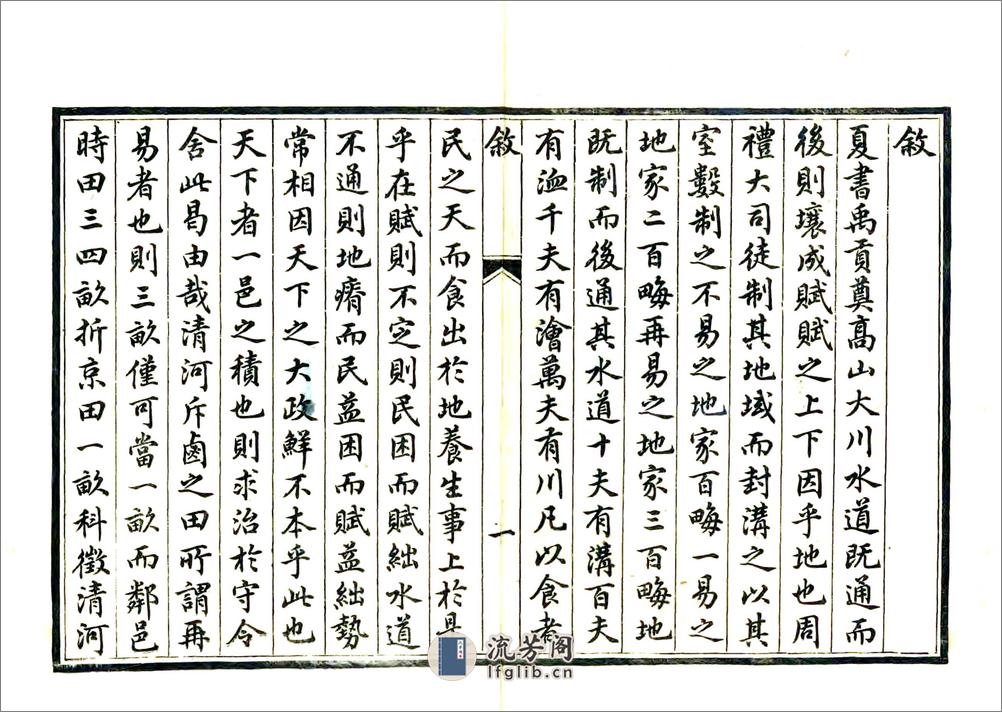 敘
夏書禹貢奠高山大川水道既通而
後則壤成賦賦之上下因乎地也周
禮大司徒制其地域而封溝之以其
室數制之不易之地家百晦一易之
地家二百晦再易之地家三百晦地
既制而後通其水道十夫有溝百夫
有洫千夫有澮萬夫有川凡以食者
敘
一
民之天而食出於地養生事上於是
乎在賦則不定則民困而賦絀水道
不通則地瘠而民益困而賦益絀勢
常相因天下之大政鮮不本乎此也
天下者一邑之積也則求治於守令
舍此曷由哉清河斥鹵之田所謂再
易者也則三畝僅可當一畝而鄰邑
時田三四畝折京田一畝科徵清河
流芳阁
lfglib.cn